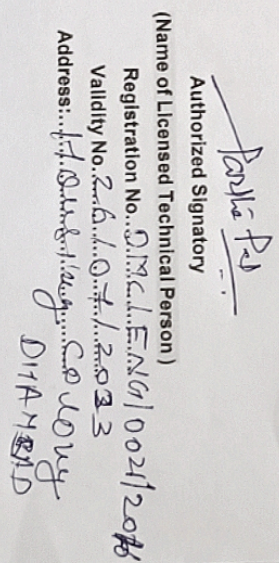 Partha Pal
Authorized Signatory
(Name of Licensed Technical Person )
Registration No...DMC/ENG/0021/2016
Validity No.26/07/2033
Address:...Housing Colony
DHANBAD